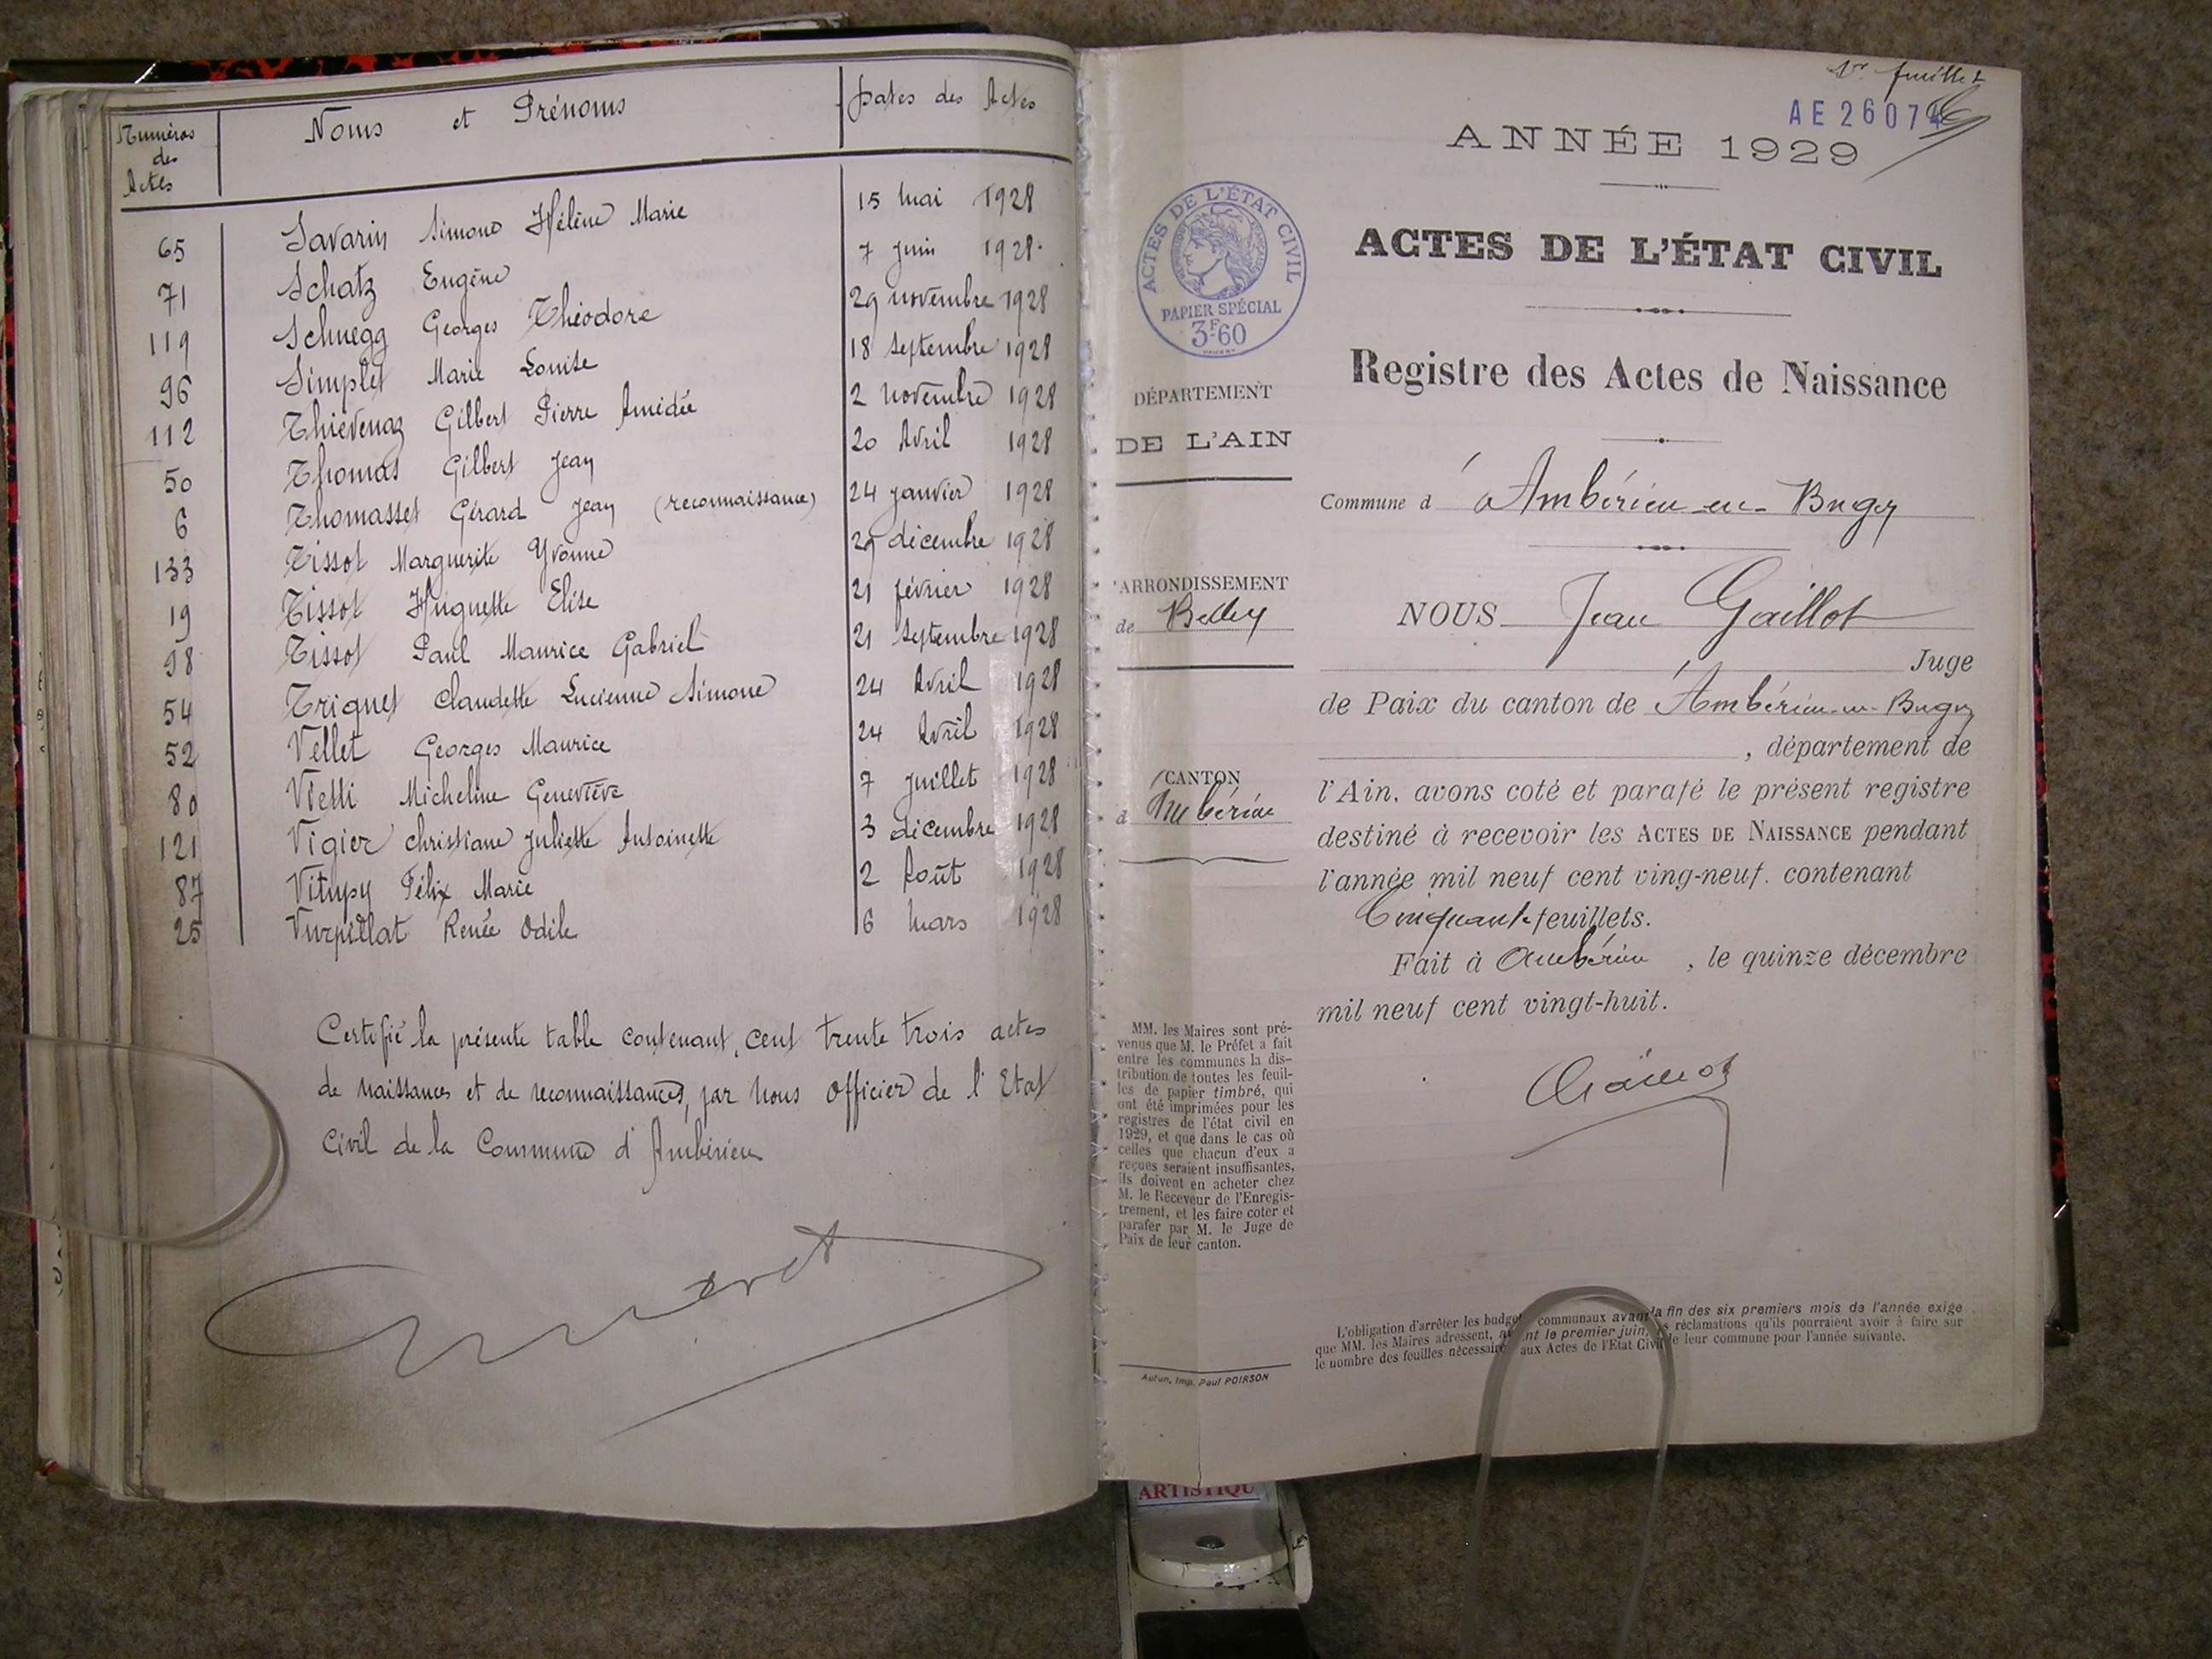 Numéros des Actes | Noms et Prénoms | Dates des Actes
65 Savarin Simone Hélène Marie 15 Mai 1928
71 Schatz Eugène 7 Juin 1928
119 Schnegg Georges Théodore 29 novembre 1928
96 Simplet Marie Louise 18 Septembre 1928
112 Thievenaz Gilbert Pierre Amédée 2 novembre 1928
50 Thomas Gilbert Jean 20 Avril 1928
6 Thomasset Gérard Jean (reconnaissance) 24 janvier 1928
133 Tissot Marguerite Yvonne 29 décembre 1928
19 Tissot Huguette Elise 21 février 1928
98 Tissot Paul Maurice Gabriel 21 Septembre 1928
54 Triquet Claudette Lucienne Simone 24 Avril 1928
52 Vellet Georges Maurice 24 Avril 1928
80 Vietti Micheline Geneviève 7 Juillet 1928
121 Vigier Christiane Juliette Antoinette 3 décembre 1928
87 Félix Marie 2 Août 1928
25 Vurpillat Renée Odile 6 Mars 1928
Certifié la présente table contenant, cent trente trois actes
de naissances et de reconnaissances, par Nous Officier de l'Etat
Civil de la Commune d'Ambérieu
1er feuillet
AE 26074
ANNÉE 1929
ACTES DE L'ÉTAT CIVIL
PAPIER SPÉCIAL
3F.60
ACTES DE L'ÉTAT CIVIL
Registre des Actes de Naissance
DÉPARTEMENT
DE L'AIN
Commune d'Ambérieu-en-Bugey
ARRONDISSEMENT
de Belley
CANTON
d'Ambérieu
NOUS Jean Gaillot
Juge
de Paix du canton de Ambérieu-en-Bugey
, département de
l'Ain, avons coté et parafé le présent registre
destiné à recevoir les ACTES DE NAISSANCE pendant
l'année mil neuf cent ving-neuf. contenant
Cinquante feuillets.
Fait à Ambérieu, le quinze décembre
mil neuf cent vingt-huit.
MM. les Maires sont pré-
venus que M. le Préfet a fait
entre les communes la dis-
tribution de toutes les feuil-
les de papier timbré, qui
ont été imprimées pour les
registres de l'état civil en
1929, et que dans le cas où
celles que chacun d'eux a
reçues seraient insuffisantes,
ils doivent en acheter chez
M. le Receveur de l'Enregis-
trement, et les faire coter et
parafer par M. le Juge de
Paix de leur canton.
L'obligation d'arrêter les budgets communaux avant la fin des six premiers mois de l'année exige
que MM. les Maires adressent, avant le premier juin, les réclamations qu'ils pourraient avoir à faire sur
le nombre des feuilles nécessaires aux Actes de l'Etat Civil de leur commune pour l'année suivante.
Autun, Imp. Paul POIRSON
ARTISTIQU